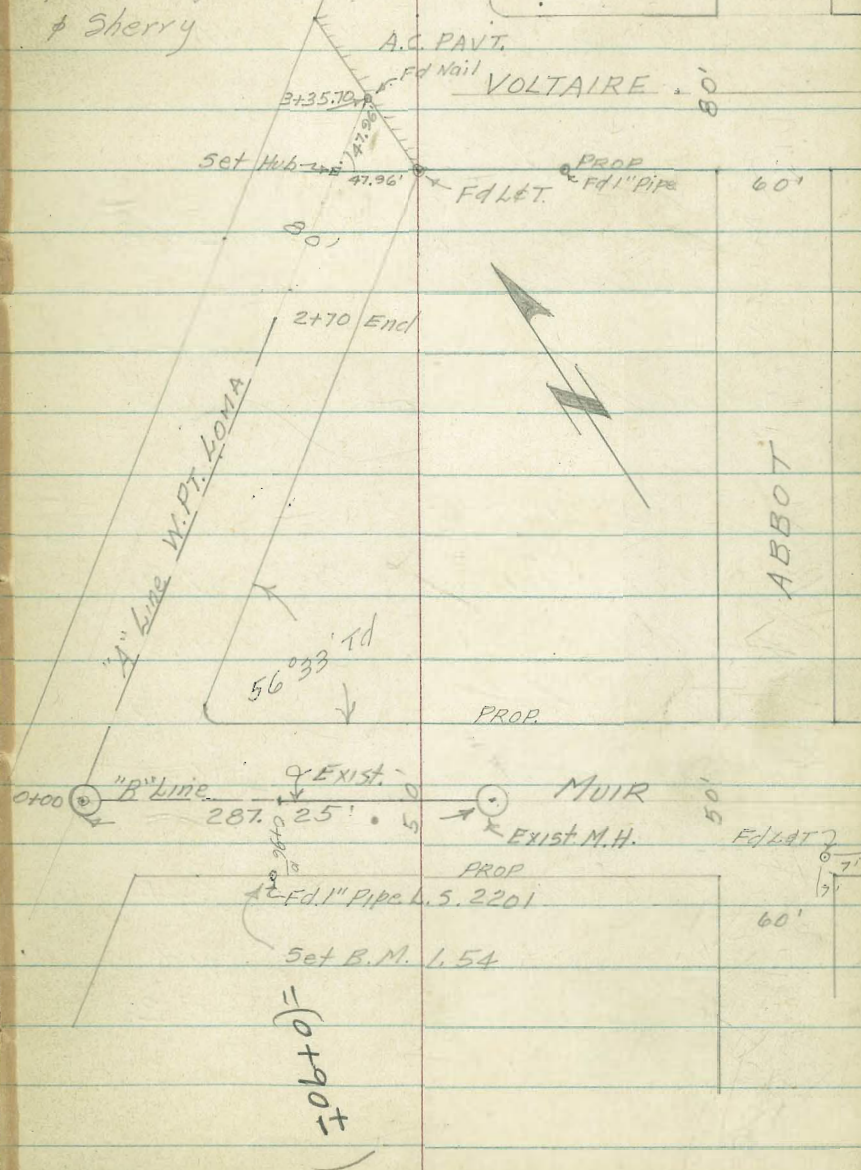 & Sherry
A.C. PAVT.
Fd Nail
VOLTAIRE
80'
3+35.70
47.96'
Set Hub
47.96'
PROP
Fd 1" Pipe
Fd L&T.
60'
80'
2+70 End
"A" Line W. PT. LOMA
ABBOT
56°33' Td
PROP.
Exist.
0+00
"B" Line
287.25'
50
MUIR
50'
Exist M.H.
Fd L&T
7'
7'
PROP
Fd. 1" Pipe L.S. 2201
60'
Set B.M. 1.54